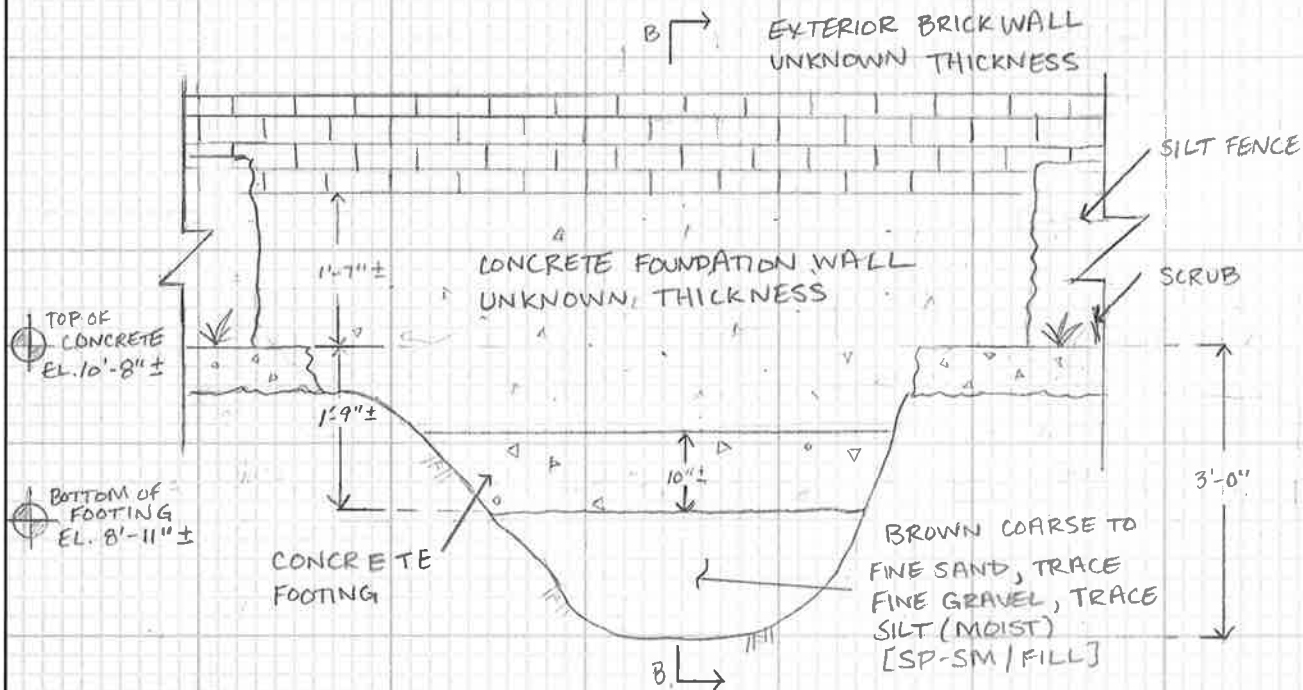 B
EXTERIOR BRICK WALL
UNKNOWN THICKNESS
SILT FENCE
1'-7"±
CONCRETE FOUNDATION WALL
UNKNOWN THICKNESS
SCRUB
TOP OF
CONCRETE
EL. 10'-8"±
1'-9"±
10"±
3'-0"
BOTTOM OF
FOOTING
EL. 8'-11"±
CONCRETE
FOOTING
BROWN COARSE TO
FINE SAND, TRACE
FINE GRAVEL, TRACE
SILT (MOIST)
[SP-SM/FILL]
B